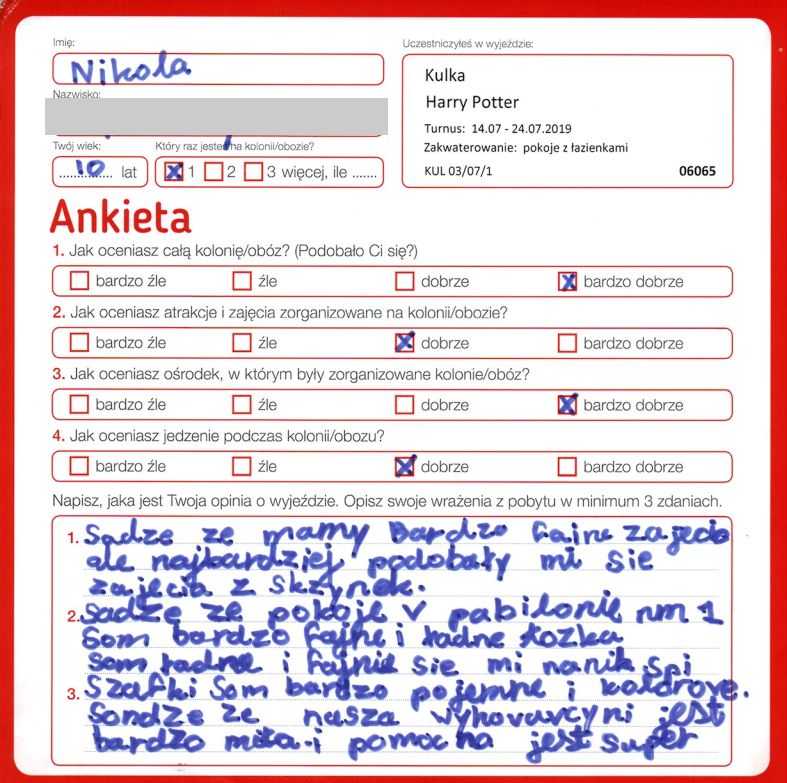 Imię:
Nikola
Uczestniczyłeś w wyjeździe:
Kulka
Harry Potter
Turnus: 14.07 - 24.07.2019
Zakwaterowanie: pokoje z łazienkami
KUL 03/07/1 06065
Nazwisko:
Twój wiek: Który raz jesteś na kolonii/obozie?
10 lat 1 2 3 więcej, ile .......
Ankieta
1. Jak oceniasz całą kolonię/obóz? (Podobało Ci się?)
bardzo źle źle dobrze bardzo dobrze
2. Jak oceniasz atrakcje i zajęcia zorganizowane na kolonii/obozie?
bardzo źle źle dobrze bardzo dobrze
3. Jak oceniasz ośrodek, w którym były zorganizowane kolonie/obóz?
bardzo źle źle dobrze bardzo dobrze
4. Jak oceniasz jedzenie podczas kolonii/obozu?
bardzo źle źle dobrze bardzo dobrze
Napisz, jaka jest Twoja opinia o wyjeździe. Opisz swoje wrażenia z pobytu w minimum 3 zdaniach.
1. Sadze ze mamy bardzo fajne zajecia
ale najbardziej podobały mi sie
zajecia z skrzynek.
2. Sadze ze pokoje v pabilonie nm 1
Som bardzo fajne i ładne łozka
som ładne i fajnie sie mi na nik spi
3. Szafki Som bardzo pojemne i kolorove.
Sondze ze nasza vyhovavcyni jest
bardzo miła i pomocna jest super